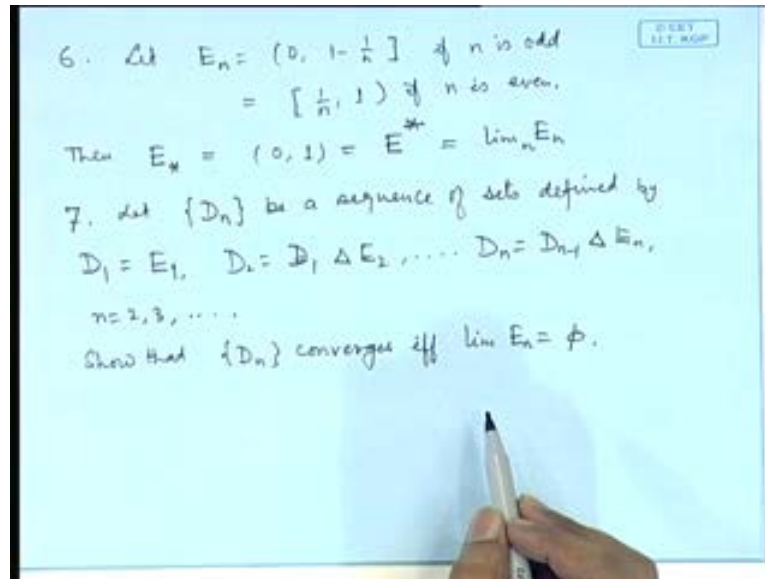 6. Let Eₙ = (0, 1 - 1/n] if n is odd
= [1/n, 1) if n is even.
Then E_* = (0, 1) = E^* = limₙ Eₙ
7. Let {Dₙ} be a sequence of sets defined by
D₁ = E₁, D₂ = D₁ Δ E₂, .... Dₙ = Dₙ₋₁ Δ Eₙ,
n = 2, 3, ....
Show that {Dₙ} converges iff lim Eₙ = ϕ.
I.I.T. KGP